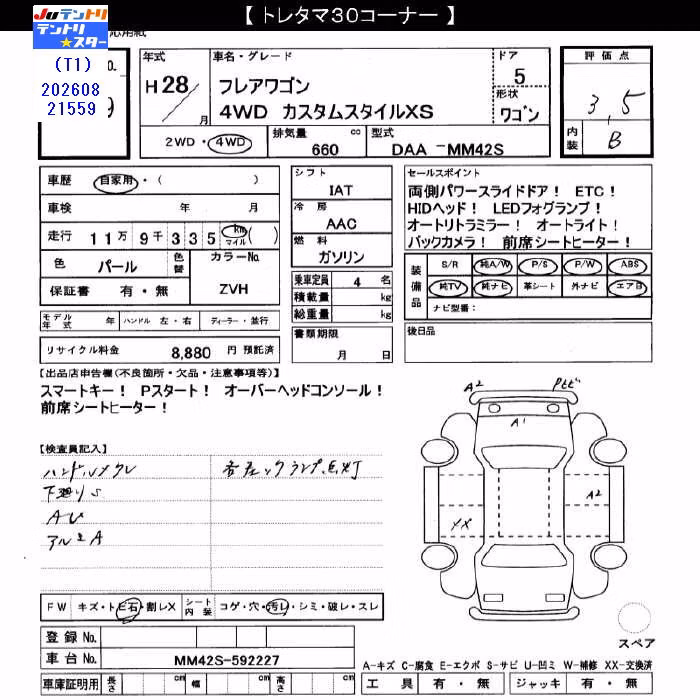 【 トレタマ30コーナー 】
JUテントリ
テントリ
★スター
応用紙
(T1)
202608
21559
No.
9
年式
H 28 / 月
車名・グレード
フレアワゴン
4WD カスタムスタイルXS
ドア
5
形状
ワゴン
評価点
3.5
内装
B
2WD・4WD
排気量 cc
660
型式
DAA -MM42S
車歴 自家用・( )
車検 年 月
走行 11万9千335 km マイル ( )
色 パール
色替
カラーNo.
ZVH
保証書 有・無
シフト
IAT
冷房
AAC
燃料
ガソリン
乗車定員 4 名
積載量 kg
総重量 kg
セールスポイント
両側パワースライドドア! ETC!
HIDヘッド! LEDフォグランプ!
オートリトラミラー! オートライト!
バックカメラ! 前席シートヒーター!
装備品
S/R 純A/W P/S P/W ABS
純TV 純ナビ 革シート 外ナビ エア日
ナビ型番:
モデル年式 年 ハンドル 左・右 ディーラー・並行
書類期限
月 日
後日品
リサイクル料金 8,880 円 預託済
【出品店申告欄(不良箇所・欠品・注意事項等)】
スマートキー! Pスタート! オーバーヘッドコンソール!
前席シートヒーター!
【検査員記入】
下廻りS
AU
アルミA
A2
A1
A2
XX
FW キズ・トビ石・割レX シート内装 コゲ・穴・汚レ・シミ・破レ・スレ
登録 No.
車台 No. MM42S-592227
車庫証明用 長さ cm 幅 cm 高さ cm
スペア
A-キズ C-腐食 E-エクボ S-サビ U-凹ミ W-補修 XX-交換済
工具 有・無 ジャッキ 有・無